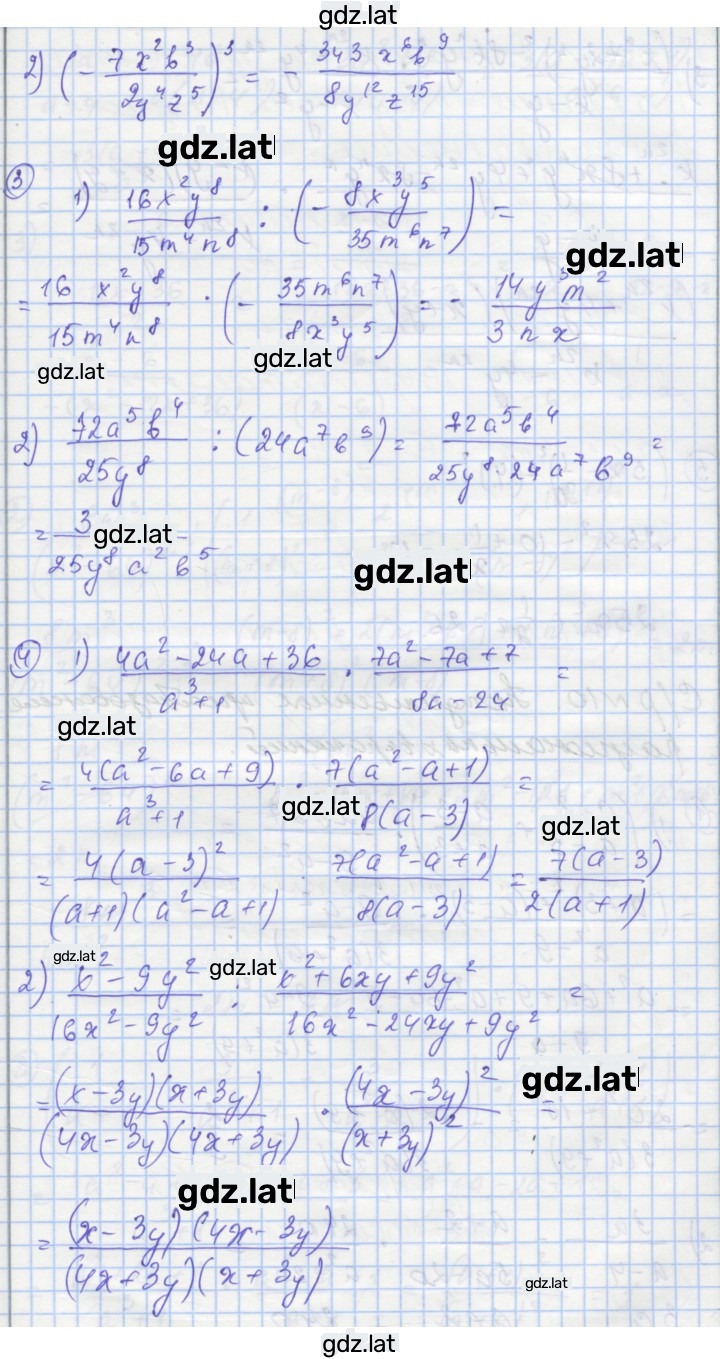 gdz.lat
2) (- 7x²b³ / 2y⁴z⁵)³ = - 343x⁶b⁹ / 8y¹²z¹⁵
gdz.lat
③ 1) 16x²y⁸ / 15m⁴n⁸ : (- 8x³y⁵ / 35m⁶n⁷) =
gdz.lat
= 16x²y⁸ / 15m⁴n⁸ · (- 35m⁶n⁷ / 8x³y⁵) = - 14y³m² / 3nx
gdz.lat
gdz.lat
2) 72a⁵b⁴ / 25y⁸ : (24a⁷b⁹) = 72a⁵b⁴ / 25y⁸·24a⁷b⁹ =
= 3 / 25y⁸a²b⁵
gdz.lat
gdz.lat
④ 1) 4a²-24a+36 / a³+1 · 7a²-7a+7 / 8a-24 =
gdz.lat
= 4(a²-6a+9) / a³+1 · 7(a²-a+1) / 8(a-3) =
gdz.lat
gdz.lat
= 4(a-3)² / (a+1)(a²-a+1) · 7(a²-a+1) / 8(a-3) = 7(a-3) / 2(a+1)
gdz.lat
gdz.lat
2) x²-9y² / 16x²-9y² : x²+6xy+9y² / 16x²-24xy+9y² =
gdz.lat
= (x-3y)(x+3y) / (4x-3y)(4x+3y) · (4x-3y)² / (x+3y)² =
gdz.lat
= (x-3y)(4x-3y) / (4x+3y)(x+3y)
gdz.lat
gdz.lat